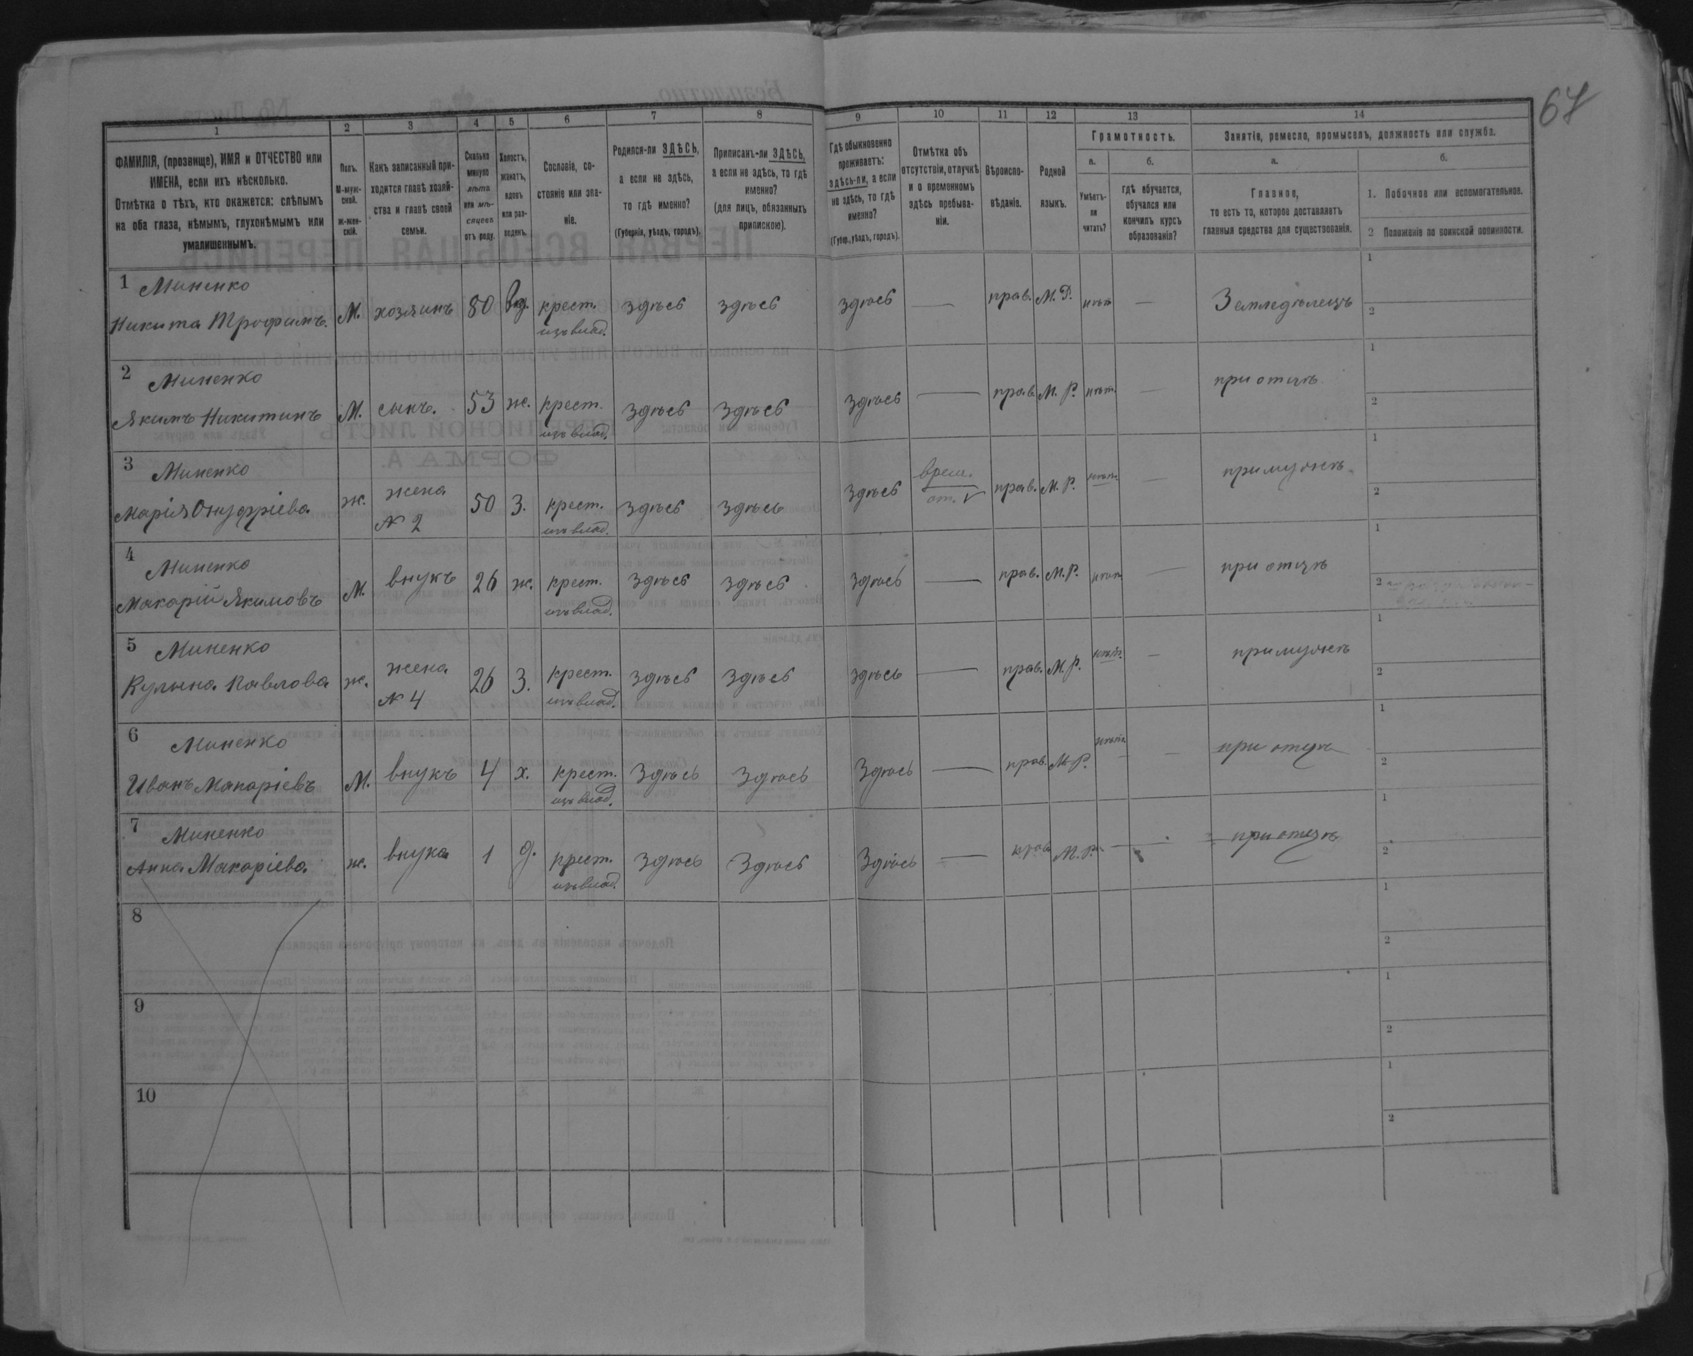 67
1 2 3 4 5 6 7 8 9 10 11 12 13 14
ФАМИЛІЯ, (прозвище), ИМЯ и ОТЧЕСТВО или
ИМЕНА, если ихъ нѣсколько.
Отмѣтка о тѣхъ, кто окажется: слѣпымъ
на оба глаза, нѣмымъ, глухонѣмымъ или
умалишеннымъ.
Полъ.
М-муж-
ской.
Ж-жен-
скій.
Какъ записанный при-
ходится главѣ хозяй-
ства и главѣ своей
семьи.
Сколько
минуло
лѣтъ
или мѣ-
сяцевъ
отъ роду.
Холостъ,
женатъ,
вдовъ
или раз-
веденъ.
Сословіе, со-
стояніе или зва-
ніе.
Родился-ли ЗДѢСЬ,
а если не здѣсь,
то гдѣ именно?
(Губернія, уѣздъ, городъ).
Приписанъ-ли ЗДѢСЬ,
а если не здѣсь, то гдѣ
именно?
(для лицъ, обязанныхъ
припискою).
Гдѣ обыкновенно
проживаетъ:
здѣсь-ли, а если
не здѣсь, то гдѣ
именно?
(Губер., уѣздъ, городъ).
Отмѣтка объ
отсутствіи, отлучкѣ
и о временномъ
здѣсь пребыва-
ніи.
Вѣроиспо-
вѣданіе.
Родной
языкъ.
Грамотность.
а.
Умѣетъ-
ли
читать?
б.
гдѣ обучается,
обучался или
кончилъ курсъ
образованія?
Занятіе, ремесло, промыселъ, должность или служба.
а.
Главное,
то есть то, которое доставляетъ
главныя средства для существованія.
б.
1. Побочное или вспомогательное.
2 Положеніе по воинской повинности.
1 Миненко
Никита Трофимъ. М. хозяинъ 80 вд. крест. здѣсь здѣсь здѣсь — прав. М.Р. нѣтъ — Земледѣлецъ 1
изъ влад. 2
2 Миненко
Якимъ Никитинъ М. сынъ. 53 ж. крест. здѣсь здѣсь здѣсь — прав. М.Р. нѣт. — при отцѣ 1
изъ влад. 2
3 Миненко
Марія Онуфріева ж. жена 50 З. крест. здѣсь здѣсь здѣсь врем. прав. М.Р. нѣтъ — при мужѣ 1
№ 2 изъ влад. от. V 2
4 Миненко
Макарій Якимовъ М. внукъ 26 ж. крест. здѣсь здѣсь здѣсь — прав. М.Р. нѣтъ — при отцѣ 1
изъ влад. 2
5 Миненко
Кулына Павлова ж. жена 26 З. крест. здѣсь здѣсь здѣсь — прав. М.Р. нѣтъ — при мужѣ 1
№ 4 изъ влад. 2
6 Миненко
Иванъ Макаріевъ М. внукъ 4 х. крест. Здѣсь Здѣсь Здѣсь — прав. М.Р. — при отцѣ 1
изъ влад. 2
7 Миненко
Анна Макаріева ж. внука 1 д. крест. Здѣсь Здѣсь Здѣсь — прав. М.Р. — при отцѣ 1
изъ влад. 2
8 1
2
9 1
2
10 1
2